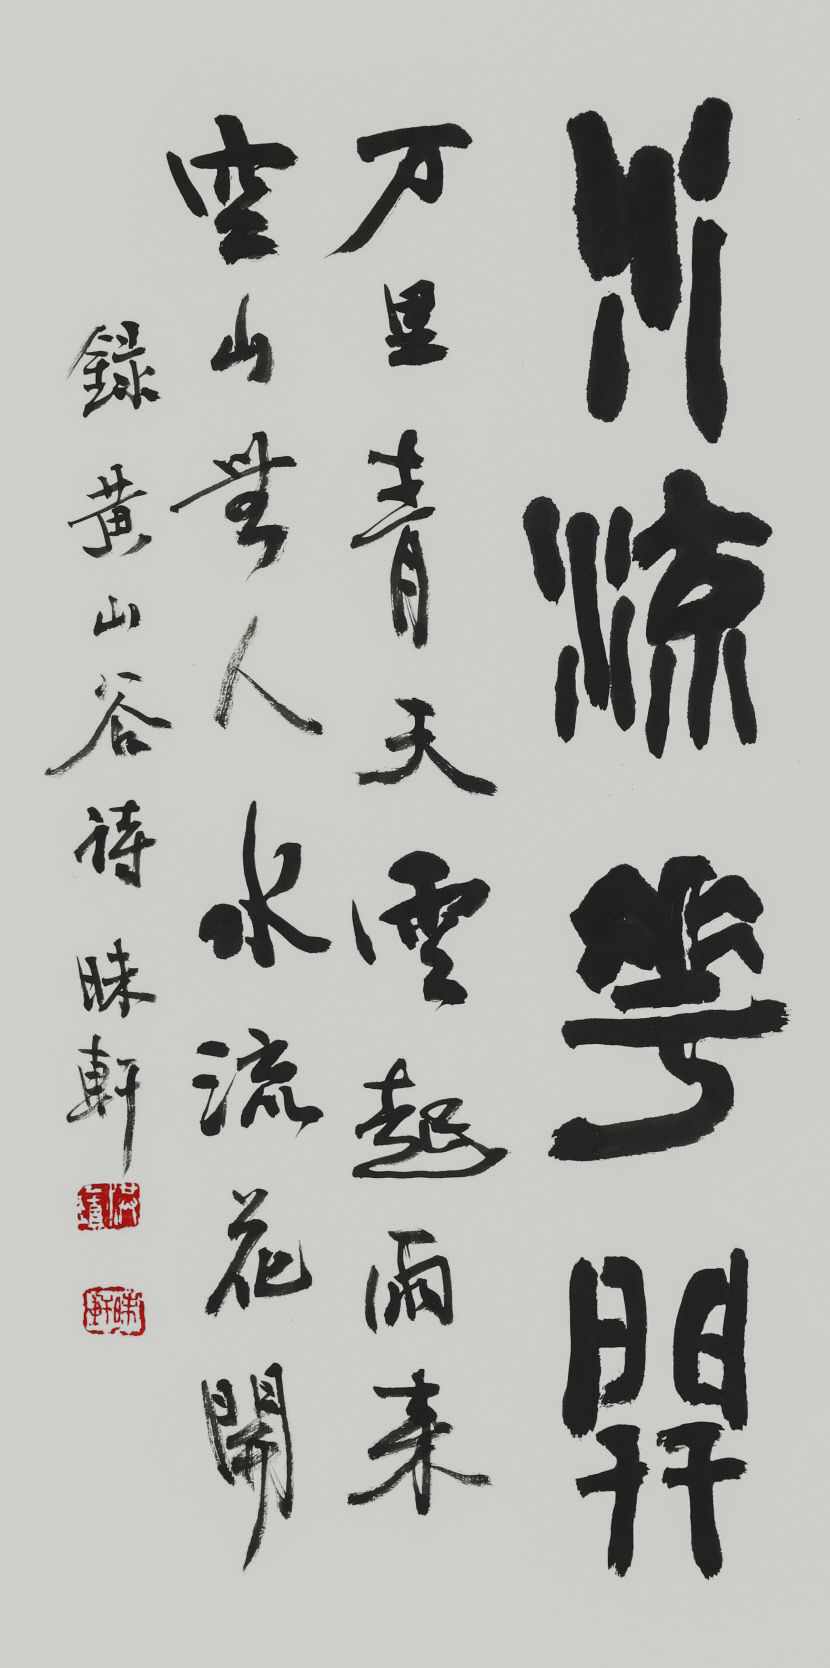 水流華開
万里青天雲起雨来
空山無人水流花開
録黄山谷詩 昧軒
昧軒